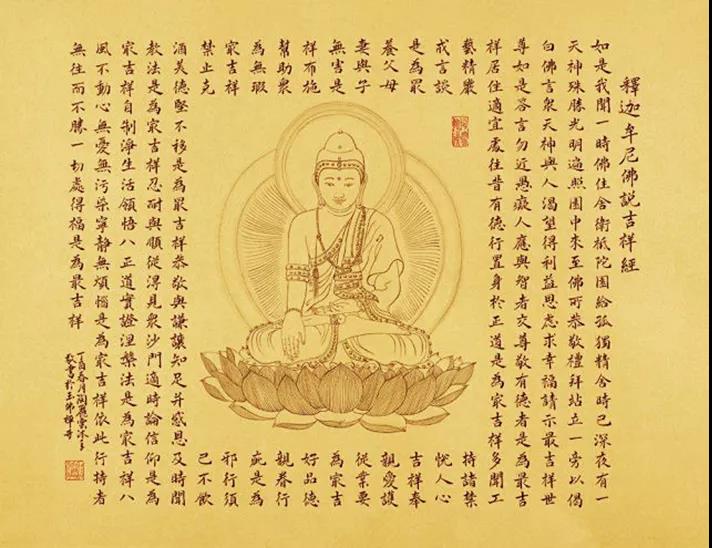 釋迦牟尼佛說吉祥經
如是我聞一時佛住舍衛祇陀園給孤獨精舍時已深夜有一
天神殊勝光明遍照園中來至佛所恭敬禮拜站立一旁以偈
白佛言眾天神與人渴望得利益思慮求幸福請示最吉祥世
尊如是答言勿近愚癡人應與智者交尊敬有德者是為最吉
祥居住適宜處往昔有德行置身於正道是為冣吉祥多聞工
藝精嚴持諸禁
戒言談悅人心
是為冣吉祥奉
養父母親愛護
妻與子從業要
無害是為冣吉
祥布施好品德
幫助眾親眷行
為無瑕疵是為
冣吉祥邪行須
禁止克己不飲
酒美德堅不移是為冣吉祥恭敬與謙讓知足并感恩及時聞
教法是為冣吉祥忍耐與順從得見眾沙門適時論信仰是為
冣吉祥自制淨生活領悟八正道實證涅槃法是為冣吉祥八
風不動心無憂無污染寧靜無煩惱是為冣吉祥依此行持者
無往而不勝一切處得福是為最吉祥
丁酉春月沐手
敬書於玉佛禪寺